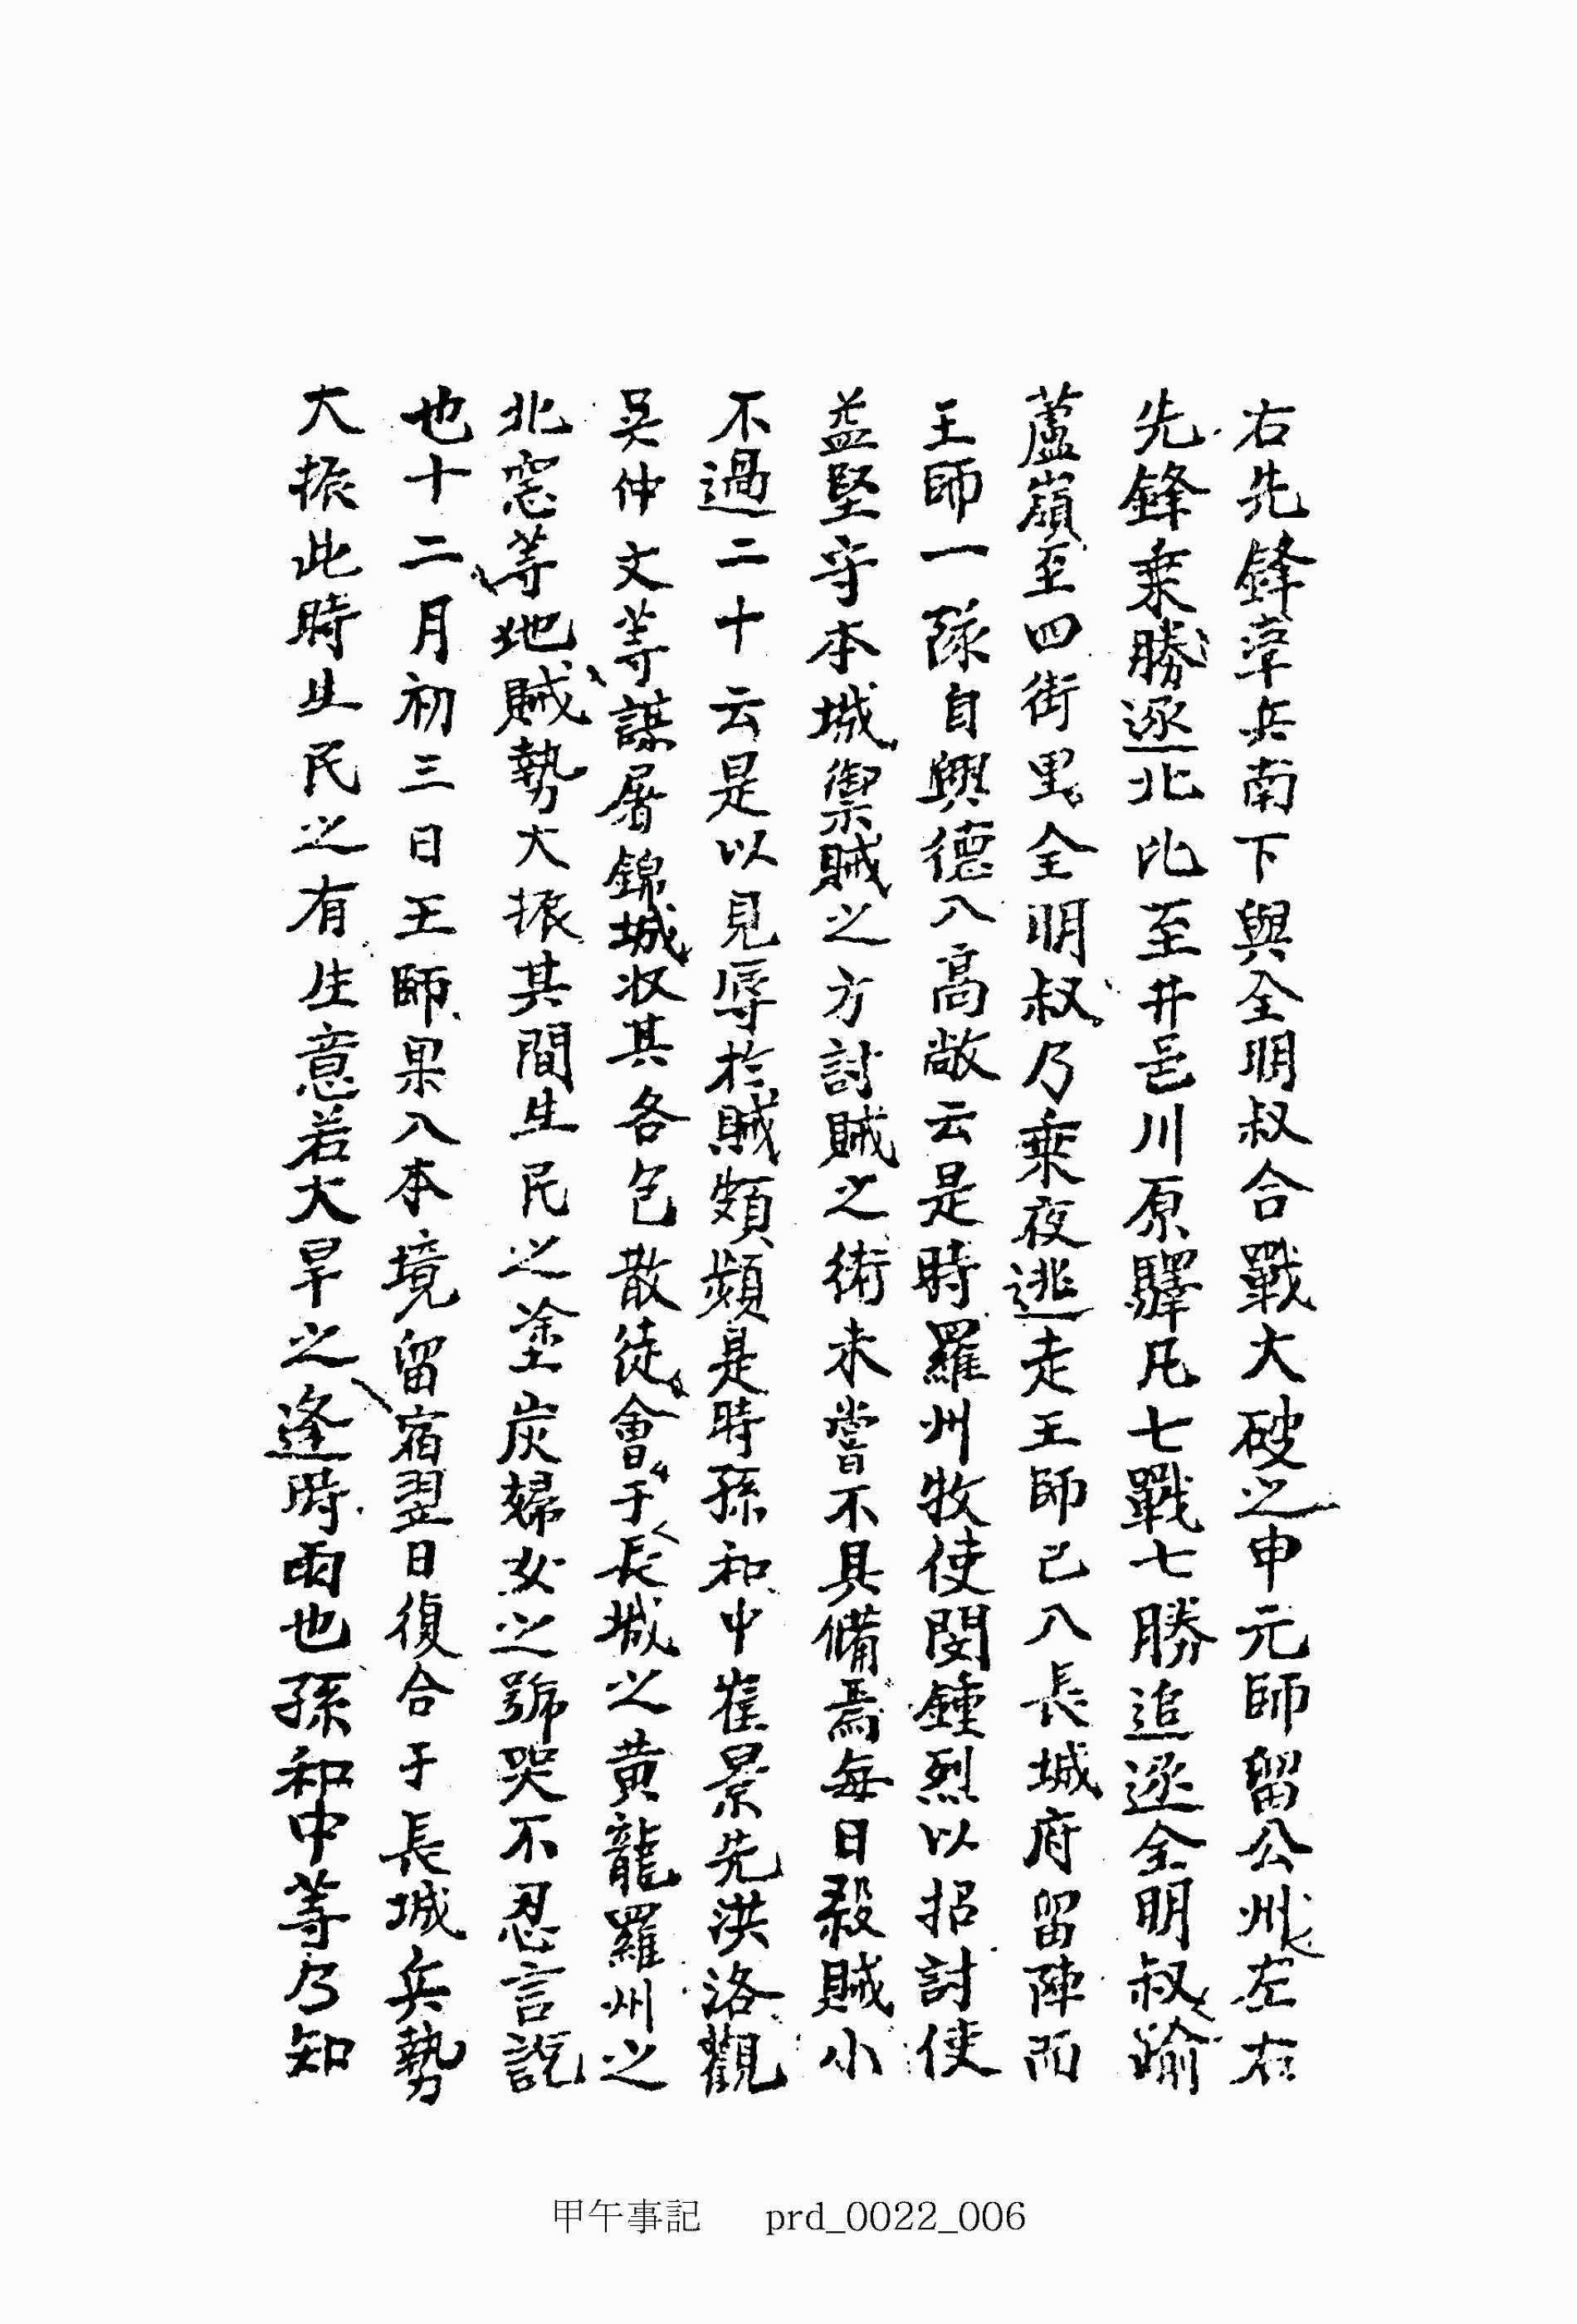 右先鋒率兵南下與全明叔合戰大破之申元師留公州左右
先鋒乘勝逐北比至井邑川原驛凡七戰七勝追逐全明叔踰
蘆嶺至四街里全明叔乃乘夜逃走王師已入長城府留陣而
王師一隊自興德入高敞云是時羅州牧使閔鍾烈以招討使
益堅守本城禦賊之方討賊之術未嘗不具備焉每日殺賊小
不過二十云是以見辱於賊頻頻是時孫和中崔景先洪洛觀
吳仲文等謀屠錦城収其各包散徒會于長城之黃龍羅州之
北窓等地賊勢大振其間生民之塗炭婦女之號哭不忍言說
也十二月初三日王師果入本境留宿翌日復合于長城兵勢
大振此時生民之有生意若大旱之逢時雨也孫和中等乃知
甲午事記 prd_0022_006